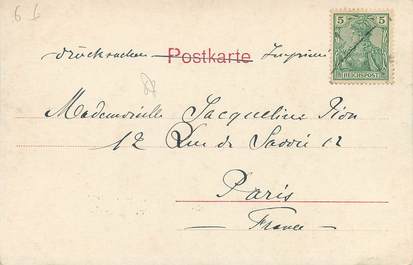 6 L
Drucksachen Postkarte Imprimé
5 5
REICHSPOST
Mademoiselle Jacqueline Pion
12 Rue de Savoie 12
Paris
France